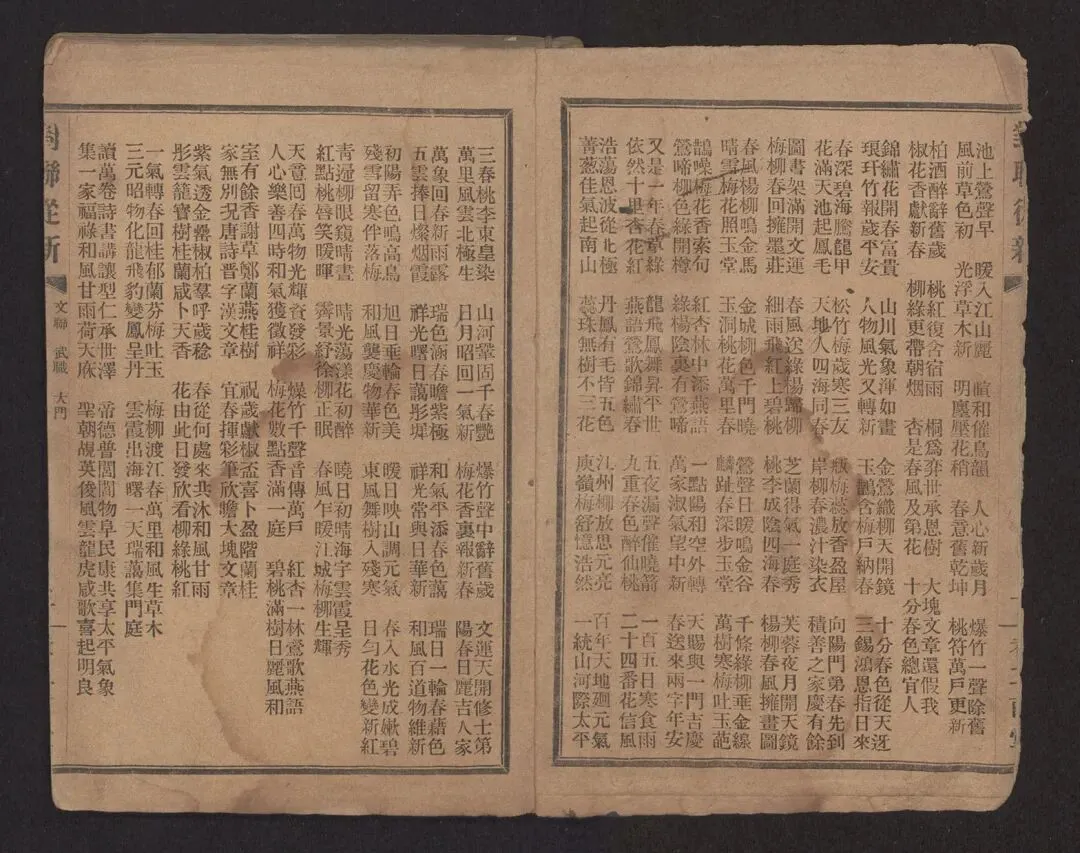 池上鶯聲早 暖入江山麗 暄和催鳥韻 人心新歲月 爆竹一聲除舊
風前草色初 光浮草木新 明麗壓花稍 春意舊乾坤 桃符萬戶更新
柏酒醉辭舊歲 桃紅復含宿雨 桐為弈世承恩樹 大塊文章還假我
椒花香獻新春 柳綠更帶朝烟 杏是春風及第花 十分春色總宜人
錦繡花開春富貴 山川氣象渾如畫 金鶯織柳天開鏡 十分春色從天迓
琅玕竹報歲平安 人物風光又轉新 玉鵲含梅戶納春 三錫鴻恩指日來
春深碧海騰龍甲 松竹梅歲寒三友 瓶梅蕊放香盈屋 向陽門第春先到
花滿天池起鳳毛 天地人四海同春 岸柳春濃汁染衣 積善之家慶有餘
圖書架滿開文運 春風送綠楊歸柳 芝蘭得氣一庭秀 芙蓉夜月開天鏡
梅柳春回擁墨莊 細雨飛紅上碧桃 桃李成陰四海春 楊柳春風擁畫圖
春風楊柳鳴金馬 金城柳色千門曉 鶯聲日暖鳴金谷 千條綠柳垂金線
晴雪梅花照玉堂 玉洞桃花萬里春 麟趾春深步玉堂 萬樹寒梅吐玉葩
鵲噪梅花香索句 紅杏林中添燕語 一點陽和空外轉 天賜與一門吉慶
鶯啼柳色綠開樽 綠楊陰裏有鶯啼 萬家淑氣望中新 春送來兩字年安
又是一年春草綠 龍飛鳳舞昇平世 五夜漏聲催曉箭 一百五日寒食雨
依然十里杏花紅 燕語鶯歌錦繡春 九重春色醉仙桃 二十四番花信風
浩蕩恩波從北極 丹鳳有毛皆五色 江州柳放思元亮 百年天地廻元氣
菁葱佳氣起南山 蕊珠無樹不三花 庾嶺梅舒憶浩然 一統山河際太平
三春桃李東皇染 山河鞏固千春艷 爆竹聲中辭舊歲 文運天開修士第
萬里風雲北極生 日月昭回一氣新 梅花香裏報新春 陽春日麗吉人家
萬象回春新雨露 瑞色涵春瞻紫極 和氣平添春色藹 瑞日一輪春藹色
五雲捧日燦烟霞 祥光曙日藹彤墀 祥光常與日華新 和風百道物維新
初陽弄色鳴高鳥 旭日垂輪春色美 暖日映山調元氣 春入水光成嫩碧
殘雪留寒伴落梅 和風襲慶物華新 東風舞樹入殘寒 日勻花色變新紅
青逥柳眼窺晴晝 晴光蕩漾花初醉 曉日初晴海宇雲霞呈秀
紅點桃唇笑暖暉 霽景紓徐柳正眠 春風乍暖江城梅柳生輝
天意囘春萬物光輝資發彩 爆竹千聲音傳萬戶 紅杏一林鶯歌燕語
人心樂善四時和氣獲徵祥 梅花數點香滿一庭 碧桃滿樹日麗風和
室有餘香謝草鄭蘭燕桂樹 祝歲獻椒盃喜卜盈階蘭桂
家無別況唐詩晋字漢文章 宜春揮彩筆欣瞻大塊文章
紫氣透金罍椒柏羣呼歲稔 春從何處來共沐和風甘雨
彤雲籠寶樹桂蘭咸卜天香 花由此日發欣看柳綠桃紅
一氣轉春回桂郁蘭芬梅吐玉 梅柳渡江春萬里和風生草木
三元昭物化龍飛豹變鳳呈丹 雲霞出海曙一天瑞藹集門庭
讀萬卷詩書講讓型仁承世澤 帝德普閭閻物阜民康共享太平氣象
集一家福祿和風甘雨荷天庥 聖朝覘英俊風雲龍虎咸歌喜起明良
對聯從新
文聯 武職 大門